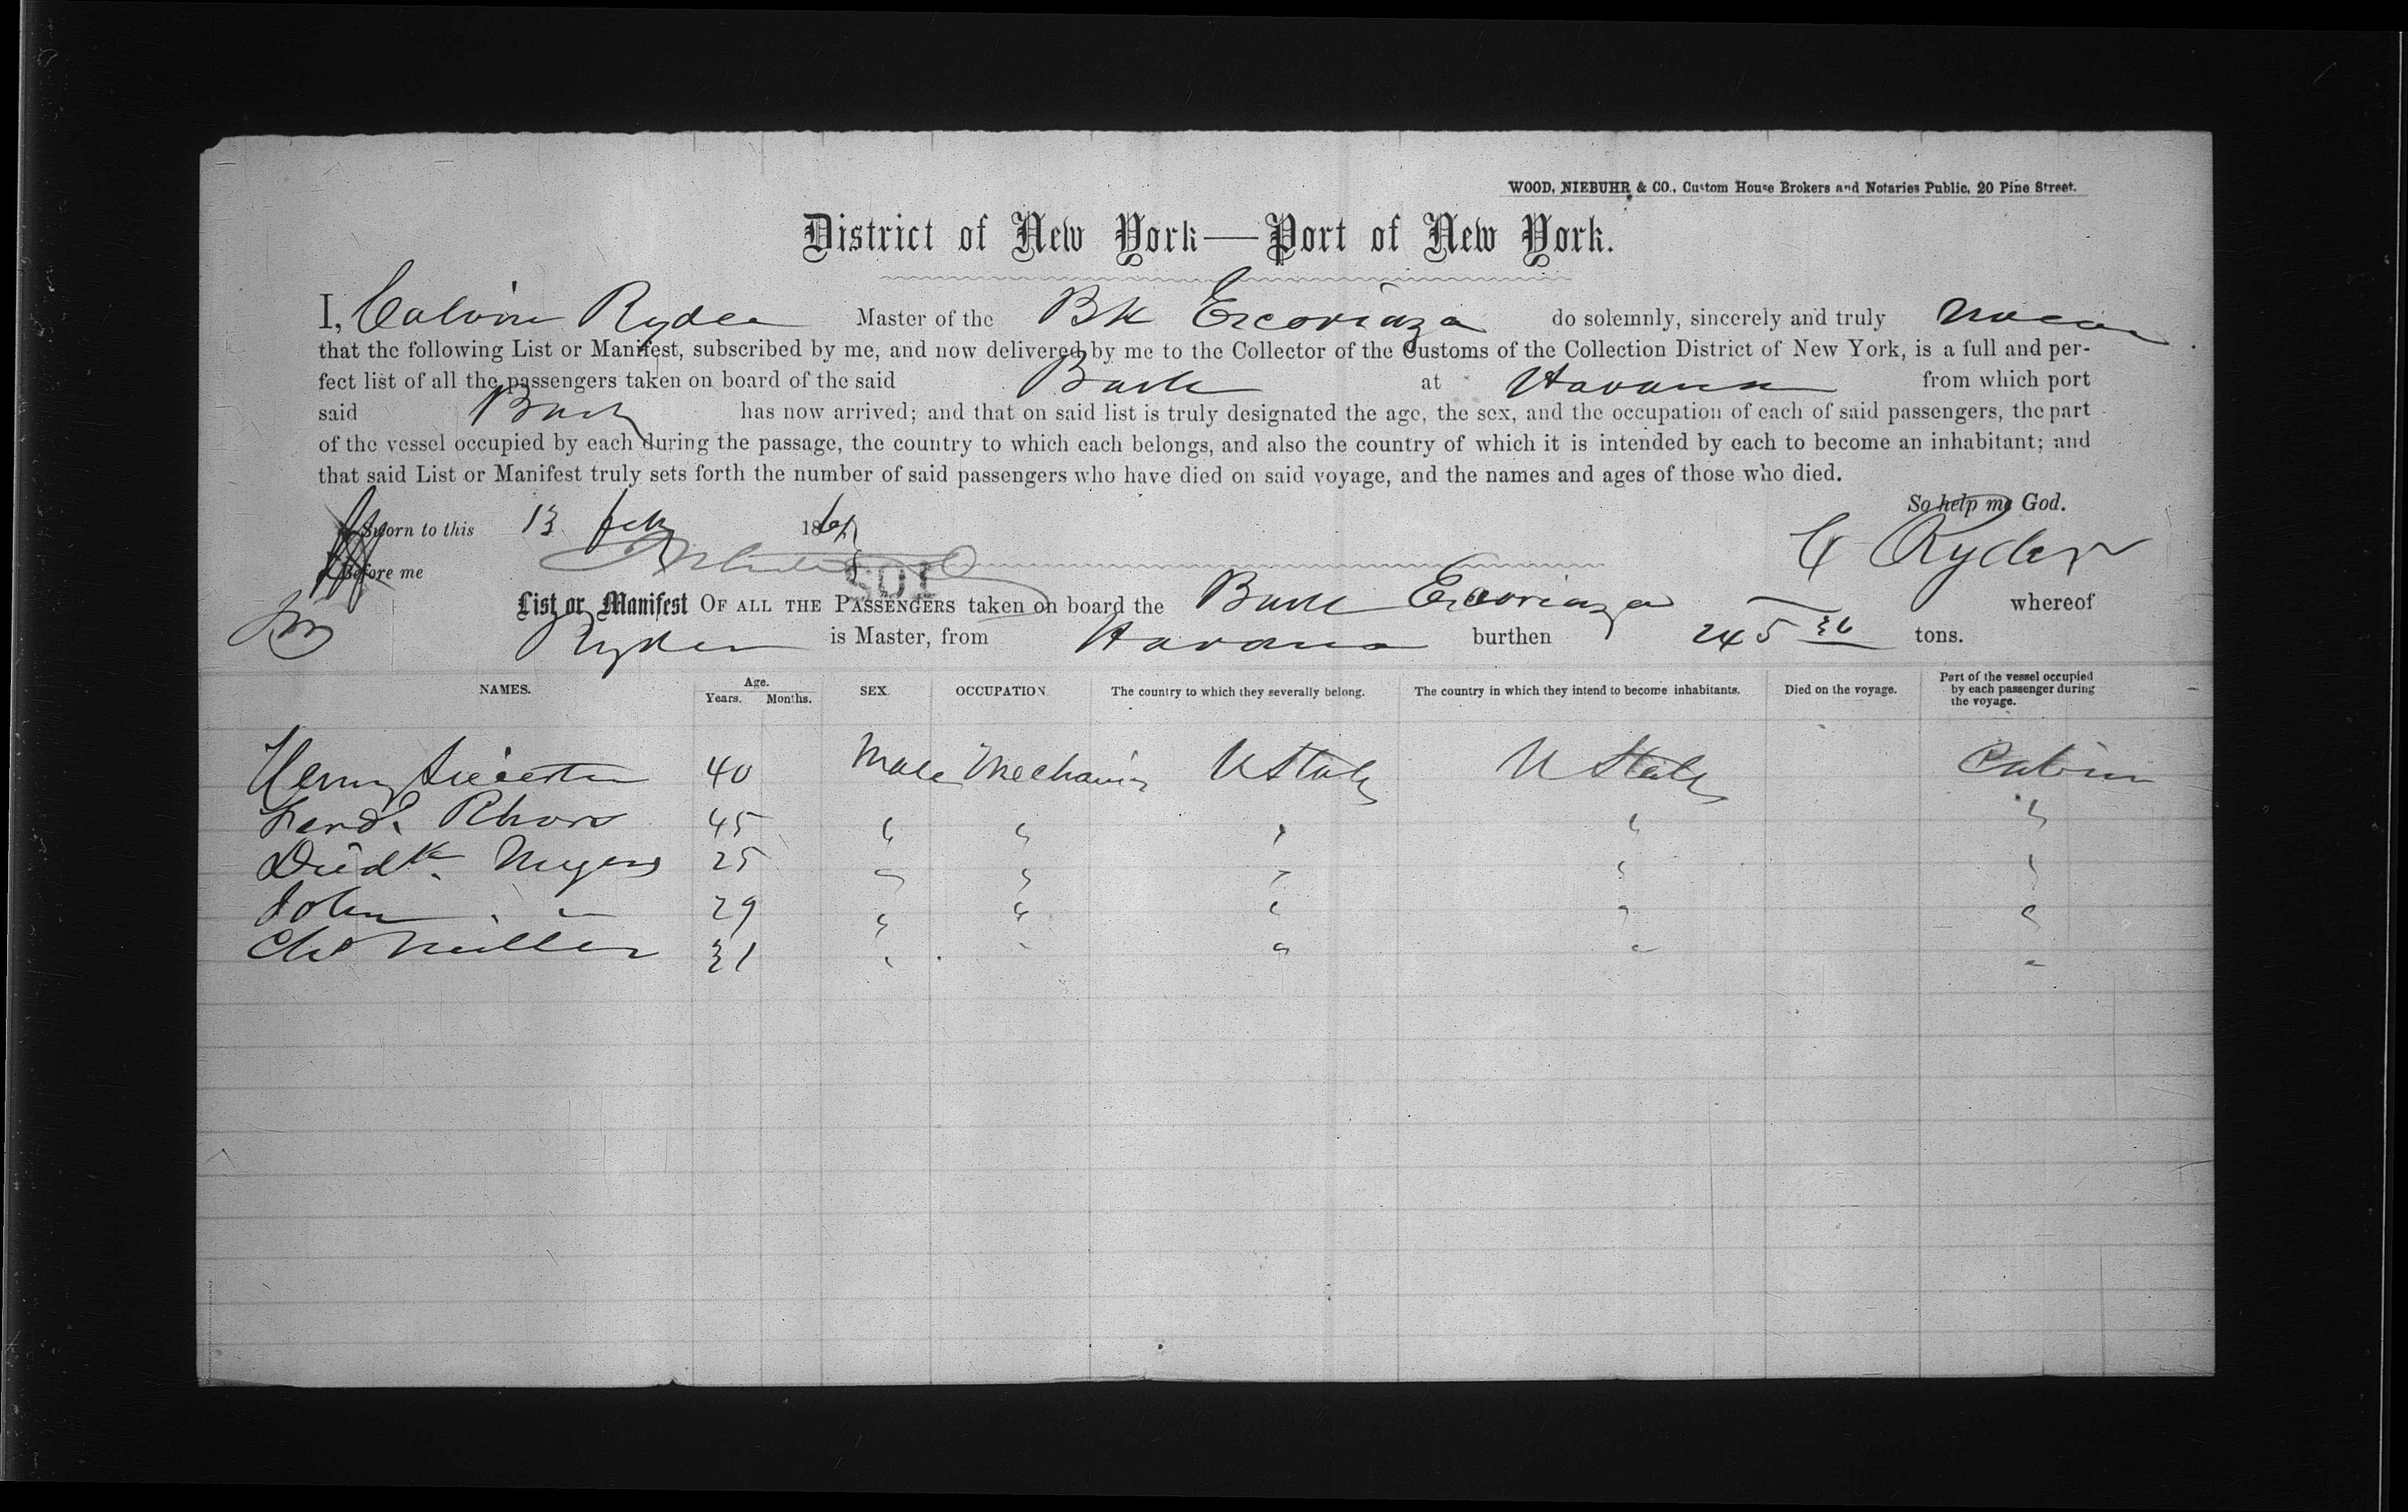 WOOD, NIEBUHR & CO., Custom House Brokers and Notaries Public, 20 Pine Street.
District of New York—Port of New York.
I, Calvin Ryder Master of the Bk do solemnly, sincerely and truly swear
that the following List or Manifest, subscribed by me, and now delivered by me to the Collector of the Customs of the Collection District of New York, is a full and per-
fect list of all the passengers taken on board of the said Bark at Havana from which port
said Bark has now arrived; and that on said list is truly designated the age, the sex, and the occupation of each of said passengers, the part
of the vessel occupied by each during the passage, the country to which each belongs, and also the country of which it is intended by each to become an inhabitant; and
that said List or Manifest truly sets forth the number of said passengers who have died on said voyage, and the names and ages of those who died.
So help me God.
Sworn to this 13 Feb 186
C Ryder
Before me
List or Manifest OF ALL THE PASSENGERS taken on board the Bark whereof
Ryder is Master, from Havana burthen 245 36 tons.
NAMES. Age. Years. Months. SEX. OCCUPATION. The country to which they severally belong. The country in which they intend to become inhabitants. Died on the voyage. Part of the vessel occupied by each passenger during the voyage.
Henry 40 Male Mechanic U States U States Cabin
Ferd. 45 " " " " "
Died.k Meyers 25 " " " " "
John " 29 " " " " "
Chs Miller 31 " " " " "